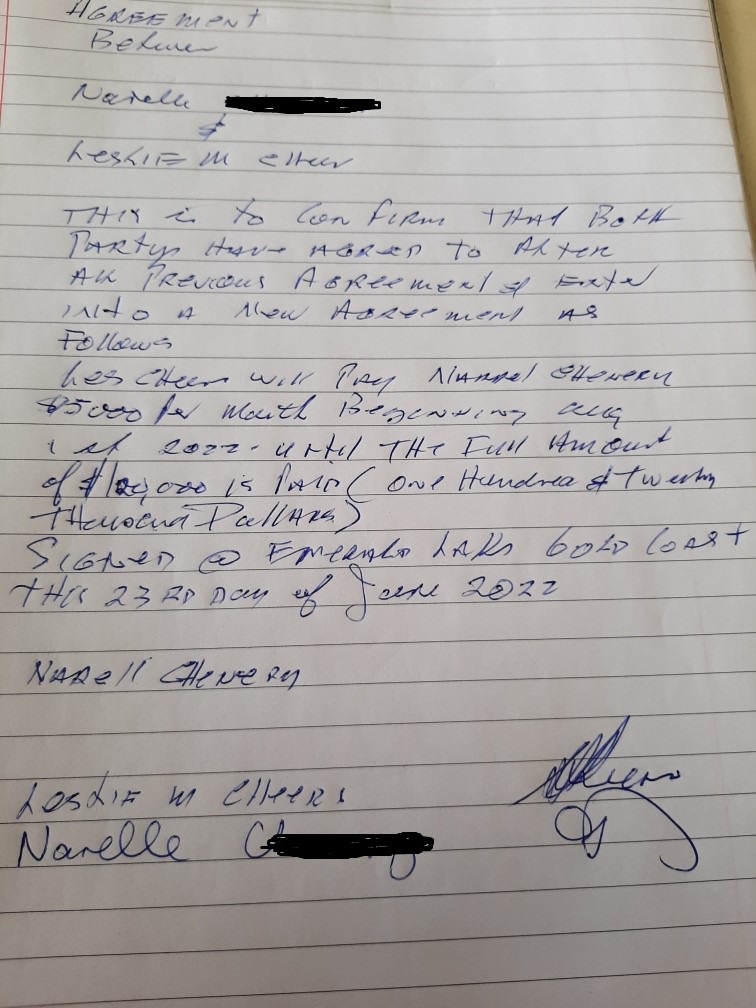 AGREEMENT
Between
Narelle
&
LESLIE M Cheers
THIS is to Confirm THAT BOTH
PARTYS HAVE AGREED TO Alter
All Previous Agreement & Enter
into A New AGREEMENT AS
Follows
Les Cheers will Pay Narrel CHENERY
$5000 per Month Beginning aug
1st 2022 - until THE Full Amount
of $120,000 is PAID (One Hundred & Twenty
Thousand Dollars)
SIGNED @ EMERALD LAKES GOLD COAST
THIS 23RD DAY of June 2022
NARELL CHENERY
LESLIE M CHEERS
Narelle C